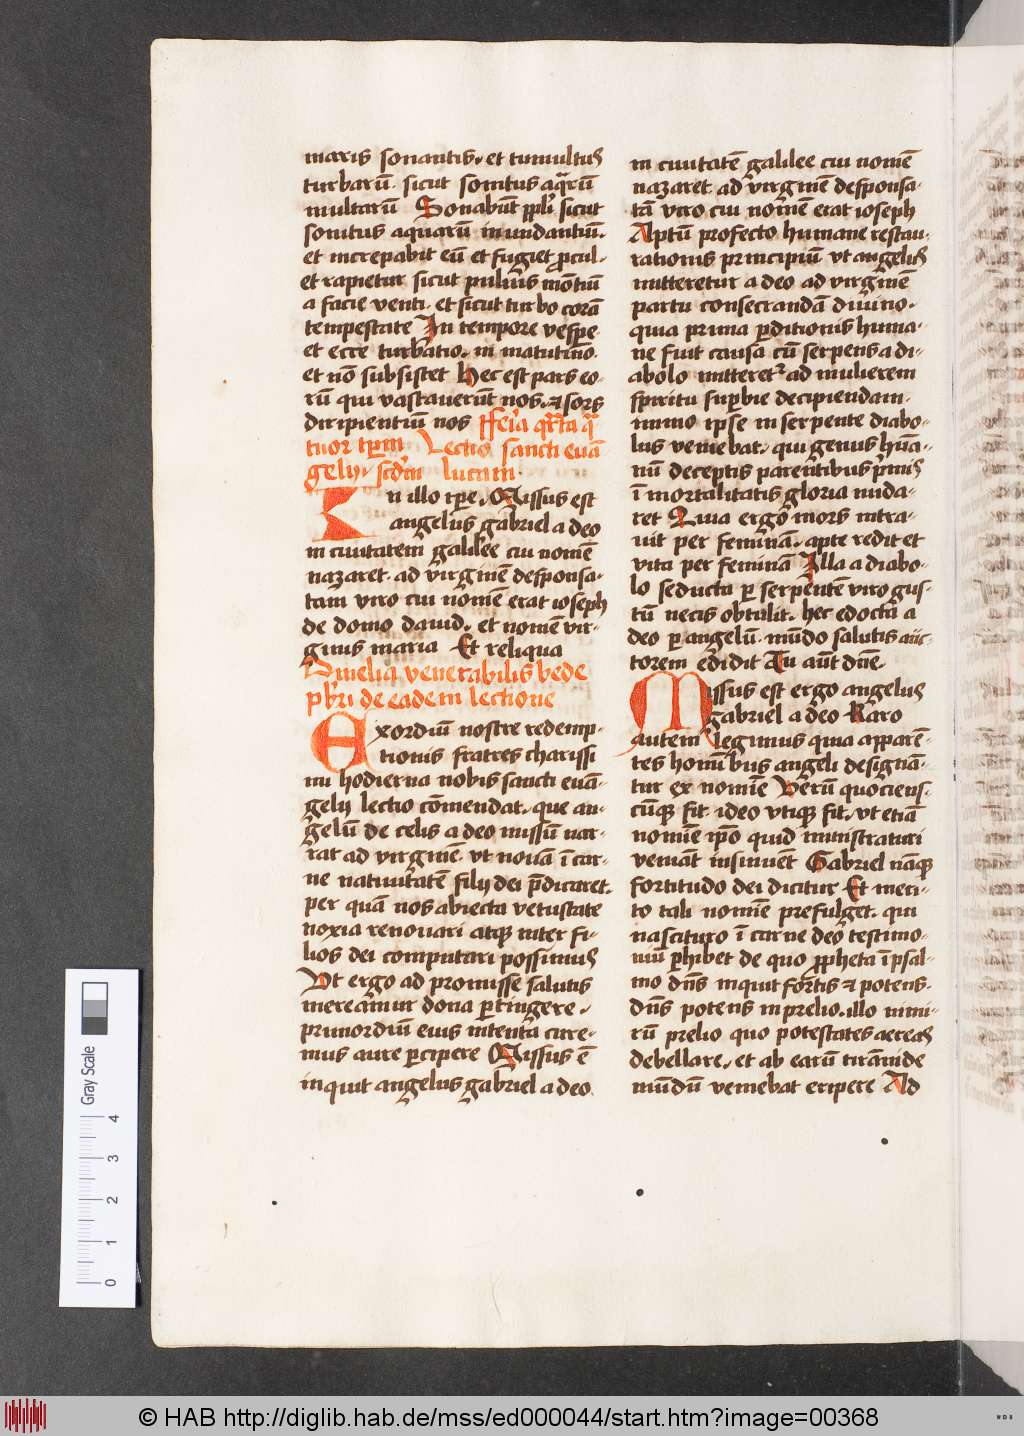 maris sonantis. et tumultus
turbarū. sicut sonitus aqͣrū
multarū Sonabūt ppl̄i sicut
sonitus aquarū inundantiū.
et increpabit eū et fugiet procul.
et rapietur sicut puluis mōtiū
a facie venti. et sicut turbo corā
tempestate In tempore vespe
et ecce turbatio. in matutino.
et nō subsistet Hec est pars eo-
rū qui vastauerūt nos. et sors
diripientiū nos Feria qrta qͣ
tuor tp̄im Lectio sancti euā
gelij. scd̄m lucam
In illo tpe. Missus est
angelus gabriel a deo
in ciuitatem galilee cui nomē
nazaret. ad virginē desponsa-
tam viro cui nomē erat ioseph
de domo dauid. et nomen vir-
ginis maria Et reliqua
Omeliq venerabilis bede
pb̄ri de eadem lectione
Exordiū nostre redemp-
tionis fratres charissi
mi hodierna nobis sancti euā-
gelij lectio cōmendat. que an-
gelū de celis a deo missū nar-
rat ad virginē. vt nouā ī car-
ne natiuitatē filij dei p̄dicaret.
per quā nos abiecta vetustate
noxia renouari atqꝫ inter fi-
lios dei computari possimus
Vt ergo ad promisse salutis
mereamur dona ꝑtingere.
primordiū eius intenta cure-
mus aure ꝑcipere Missus ē
inquit angelus gabriel a deo
in ciuitatē galilee cui nomē
nazaret. ad virginē desponsa-
tā viro cui nomē erat ioseph
Aptū profecto humane restau-
rationis principiū vt angelus
mitteretur a deo ad virginē
partu consecrandā diuino.
quia prima ꝑditionis huma-
ne fuit causa cū serpens a di-
abolo mitteretᷣ ad mulierem
spiritu suꝑbie decipiendam.
immo ipse in serpente diabo-
lus veniebat. qui genus humā-
nū deceptis parentibus primis
ī mortalitatis gloria nuda-
ret Quia ergo mors intra-
uit per feminā. apte redit et
vita per feminā Illa a diabo-
lo seducta ꝑ serpentē viro gus-
tū necis obtulit. hec edocta a
deo ꝑ angelū. mūdo salutis auc-
torem edidit Tu aūt dn̄e.
Missus est ergo angelus
gabriel a deo Raro
autem legimus quia apparē-
tes hominibus angeli designā-
tur ex nomīe Verū quociens-
cūqꝫ fit. ideo vtiqꝫ fit. vt etiā
nomīe ip̄o quid ministraturi
veniāt insinuēt Gabriel nāqꝫ
fortitudo dei dicitur Et meri-
to tali nomīe prefulget. qui
nascituro ī carne deo testimo-
niū ꝑhibet de quo ꝓpheta ī psal-
mo dn̄s inquit fortis et potens.
dn̄s potens in prelio. illo nimi-
rū prelio quo potestates aereas
debellare. et ab earū tirānide
mūdū veniebat eripere Ad
Gray Scale
0 1 2 3 4
© HAB http://diglib.hab.de/mss/ed000044/start.htm?image=00368